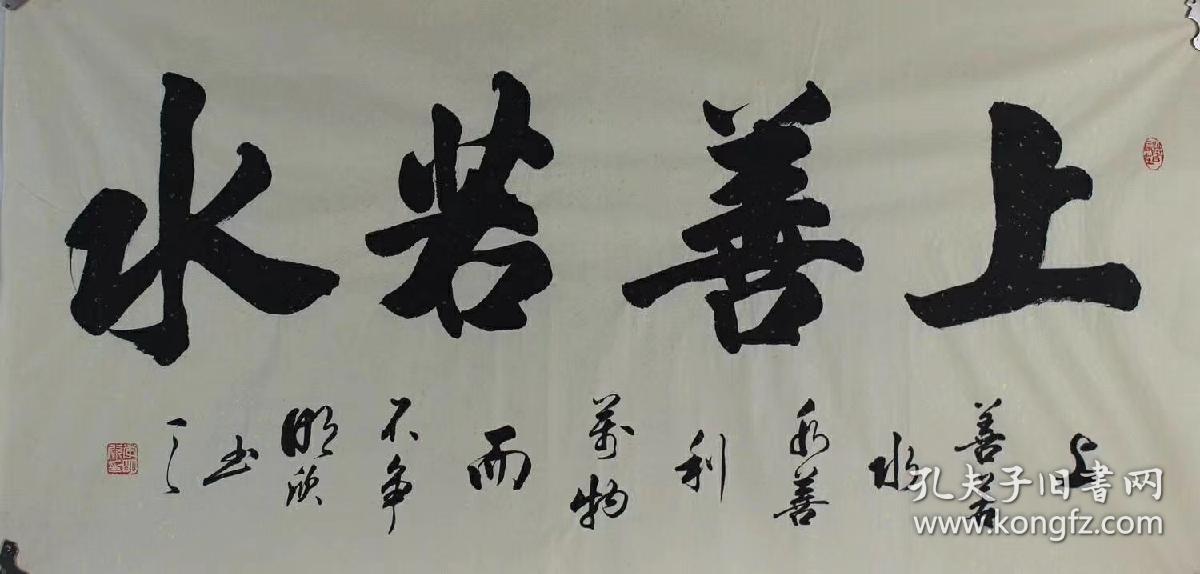 上善若水
上善若水水善利萬物而不争
书之
孔夫子旧书网
www.kongfz.com